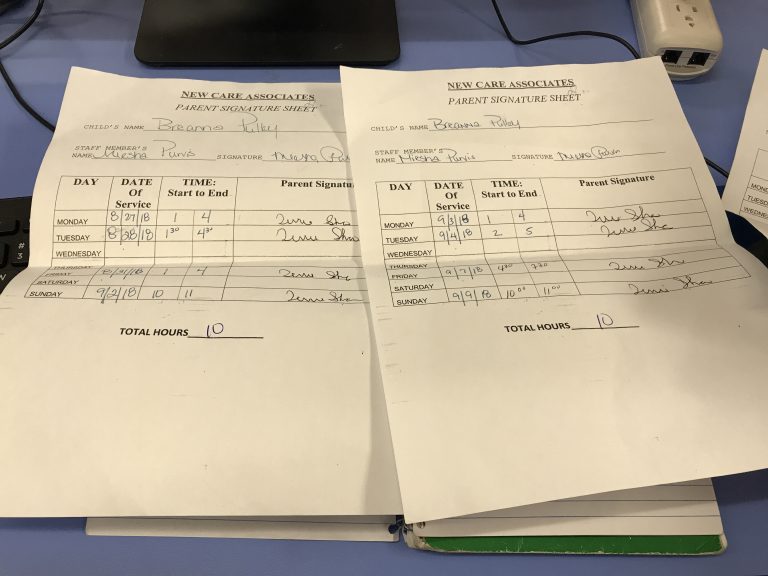 NEW CARE ASSOCIATES
PARENT SIGNATURE SHEET
CHILD'S NAME Breanna Pulley
STAFF MEMBER'S
NAME Miesha Purvis SIGNATURE Miesha
DAY DATE Of Service TIME: Start to End Parent Signatur
MONDAY 8/27/18 1 4
TUESDAY 8/28/18 1 30 4 30
WEDNESDAY
THURSDAY
FRIDAY 8/31/18 1 4
SATURDAY
SUNDAY 9/2/18 10 11
TOTAL HOURS 10
NEW CARE ASSOCIATES
PARENT SIGNATURE SHEET
CHILD'S NAME Breanna Pulley
STAFF MEMBER'S
NAME Miesha Purvis SIGNATURE Miesha Purvis
DAY DATE Of Service TIME: Start to End Parent Signature
MONDAY 9/3/18 1 4
TUESDAY 9/4/18 2 5
WEDNESDAY
THURSDAY
FRIDAY 9/7/18 4 30 7 30
SATURDAY
SUNDAY 9/9/18 10 00 11 00
TOTAL HOURS 10
MONDAY
TUESDAY
WEDNES
#
3